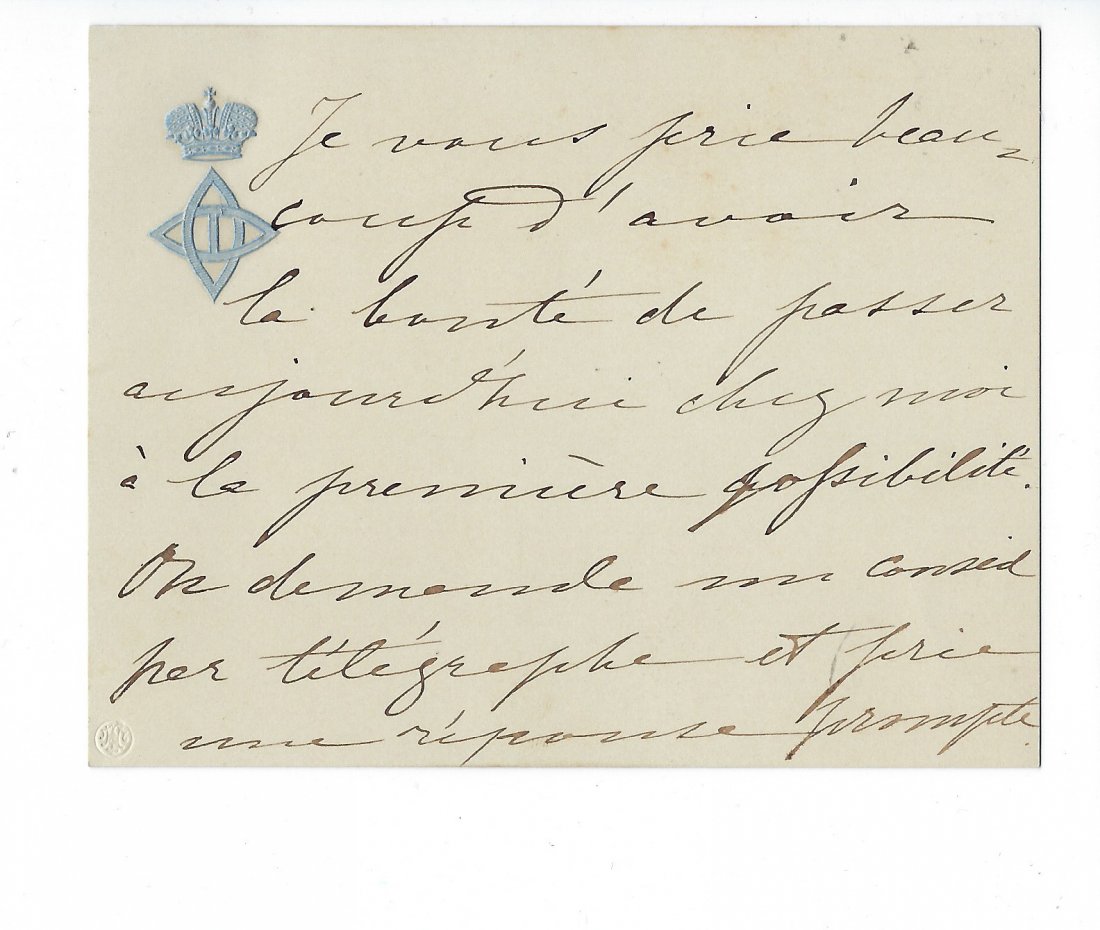 Je vous prie beau-
coup d'avoir
la bonté de passer
aujourd'hui chez moi
à la première possibilité.
On demande un conseil
par télégraphe et prie
une réponse prompte.